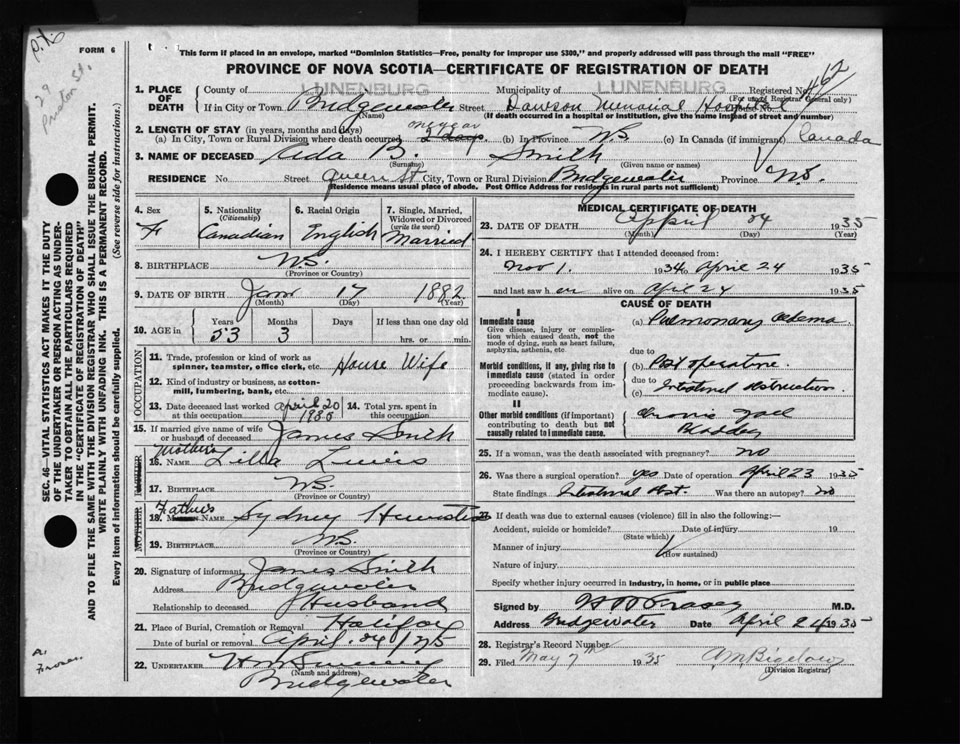 FORM 6
This form if placed in an envelope, marked "Dominion Statistics—Free, penalty for improper use $300," and properly addressed will pass through the mail "FREE"
PROVINCE OF NOVA SCOTIA—CERTIFICATE OF REGISTRATION OF DEATH
1. PLACE OF DEATH County of LUNENBURG Municipality of LUNENBURG Registered No.
(For use of Registrar General only)
If in City or Town Bridgewater Street Dawson Memorial Hospital
(Name) (If death occurred in a hospital or institution, give the name instead of street and number)
2. LENGTH OF STAY (in years, months and days)
(a) In City, Town or Rural Division where death occurred one year (b) In Province N.S. (c) In Canada (if immigrant) Canada
3. NAME OF DECEASED Aida B. Smith
(Surname) (Given name or names)
RESIDENCE No Street Queen St City, Town or Rural Division Bridgewater Province N.S.
(Residence means usual place of abode. Post Office Address for residents in rural parts not sufficient)
4. Sex F
5. Nationality (Citizenship) Canadian
6. Racial Origin English
7. Single, Married, Widowed or Divorced (write the word) Married
8. BIRTHPLACE N.S.
(Province or Country)
9. DATE OF BIRTH Jan 17 1882
(Month) (Day) (Year)
10. AGE in Years Months Days If less than one day old
53 3 hrs. or min.
OCCUPATION
11. Trade, profession or kind of work as spinner, teamster, office clerk, etc. House Wife
12. Kind of industry or business, as cotton-mill, lumbering, bank, etc.
13. Date deceased last worked at this occupation April 20 1935
14. Total yrs. spent in this occupation
15. If married give name of wife or husband of deceased James Smith
Mothers
16. NAME Lilla Lewis
17. BIRTHPLACE N.S.
(Province or Country)
Fathers
18. NAME Sydney
MOTHER
19. BIRTHPLACE N.S.
(Province or Country)
20. Signature of informant James Smith
Address Bridgewater
Relationship to deceased Husband
21. Place of Burial, Cremation or Removal Halifax
Date of burial or removal April 24
22. UNDERTAKER
(Name and address)
Bridgewater
MEDICAL CERTIFICATE OF DEATH
23. DATE OF DEATH April 24 1935
(Month) (Day) (Year)
24. I HEREBY CERTIFY that I attended deceased from:
Nov 1. 1934 to April 24 1935
and last saw her alive on April 24 1935
CAUSE OF DEATH
I
Immediate cause
Give disease, injury or complication which caused death, not the mode of dying, such as heart failure, asphyxia, asthenia, etc
(a) Pulmonary oedema
due to
Morbid conditions, if any, giving rise to immediate cause (stated in order proceeding backwards from immediate cause).
(b) Post operative
due to
(c) Intestinal obstruction
II
Other morbid conditions (if important) contributing to death but not causally related to immediate cause.
Chronic Gall
Bladder
25. If a woman, was the death associated with pregnancy? no
26. Was there a surgical operation? yes Date of operation April 23 1935
State findings Intestinal Obst. Was there an autopsy? no
27. If death was due to external causes (violence) fill in also the following:—
Accident, suicide or homicide? Date of injury 19
(State which)
Manner of injury
(How sustained)
Nature of injury
Specify whether injury occurred in industry, in home, or in public place
Signed by Frasey M.D.
Address Bridgewater Date April 24 1935
28. Registrar's Record Number
29. Filed May 7th 1935 A M Bigelow
(Division Registrar)
SEC. 46—VITAL STATISTICS ACT MAKES IT THE DUTY OF THE UNDERTAKER OR PERSON ACTING AS UNDERTAKER TO OBTAIN ALL THE PARTICULARS REQUIRED IN THE "CERTIFICATE OF REGISTRATION OF DEATH" AND TO FILE THE SAME WITH THE DIVISION REGISTRAR WHO SHALL ISSUE THE BURIAL PERMIT.
WRITE PLAINLY WITH UNFADING INK. THIS IS A PERMANENT RECORD.
Every item of information should be carefully supplied. (See reverse side for instructions.)